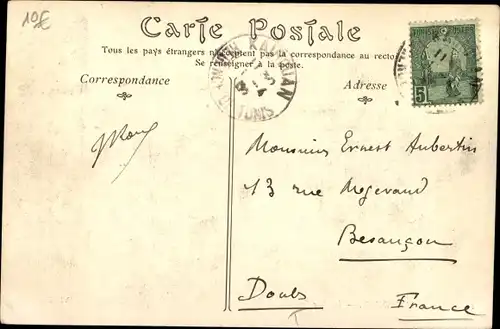 10€
Carte Postale
Tous les pays étrangers n'acceptent pas la correspondance au recto
Se renseigner à la poste.
Correspondance
Adresse
KAIROUAN
TUNIS
5
Monsieur Ernest Aubertin
13 rue Megevand
Besançon
Doubs
France